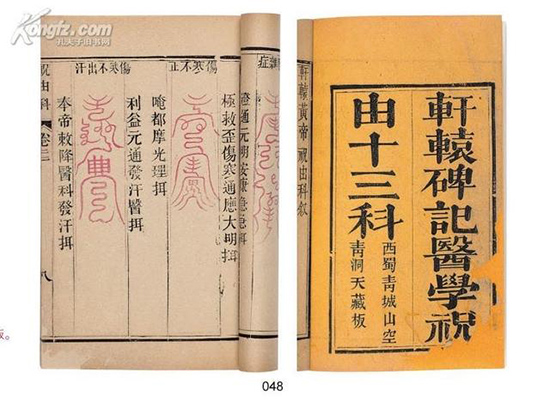 Kongfz.com
孔夫子旧书网
軒轅碑記醫學祝
由十三科
西蜀青城山空
青洞天藏板
軒轅黃帝祝由科敘
極救歪傷寒通應大明揖
傷寒不止
唵都摩光理揖
利益元通發汗醫揖
傷寒不出汗
奉帝敕降醫科發汗揖
祝由科
卷三
八
版。
048